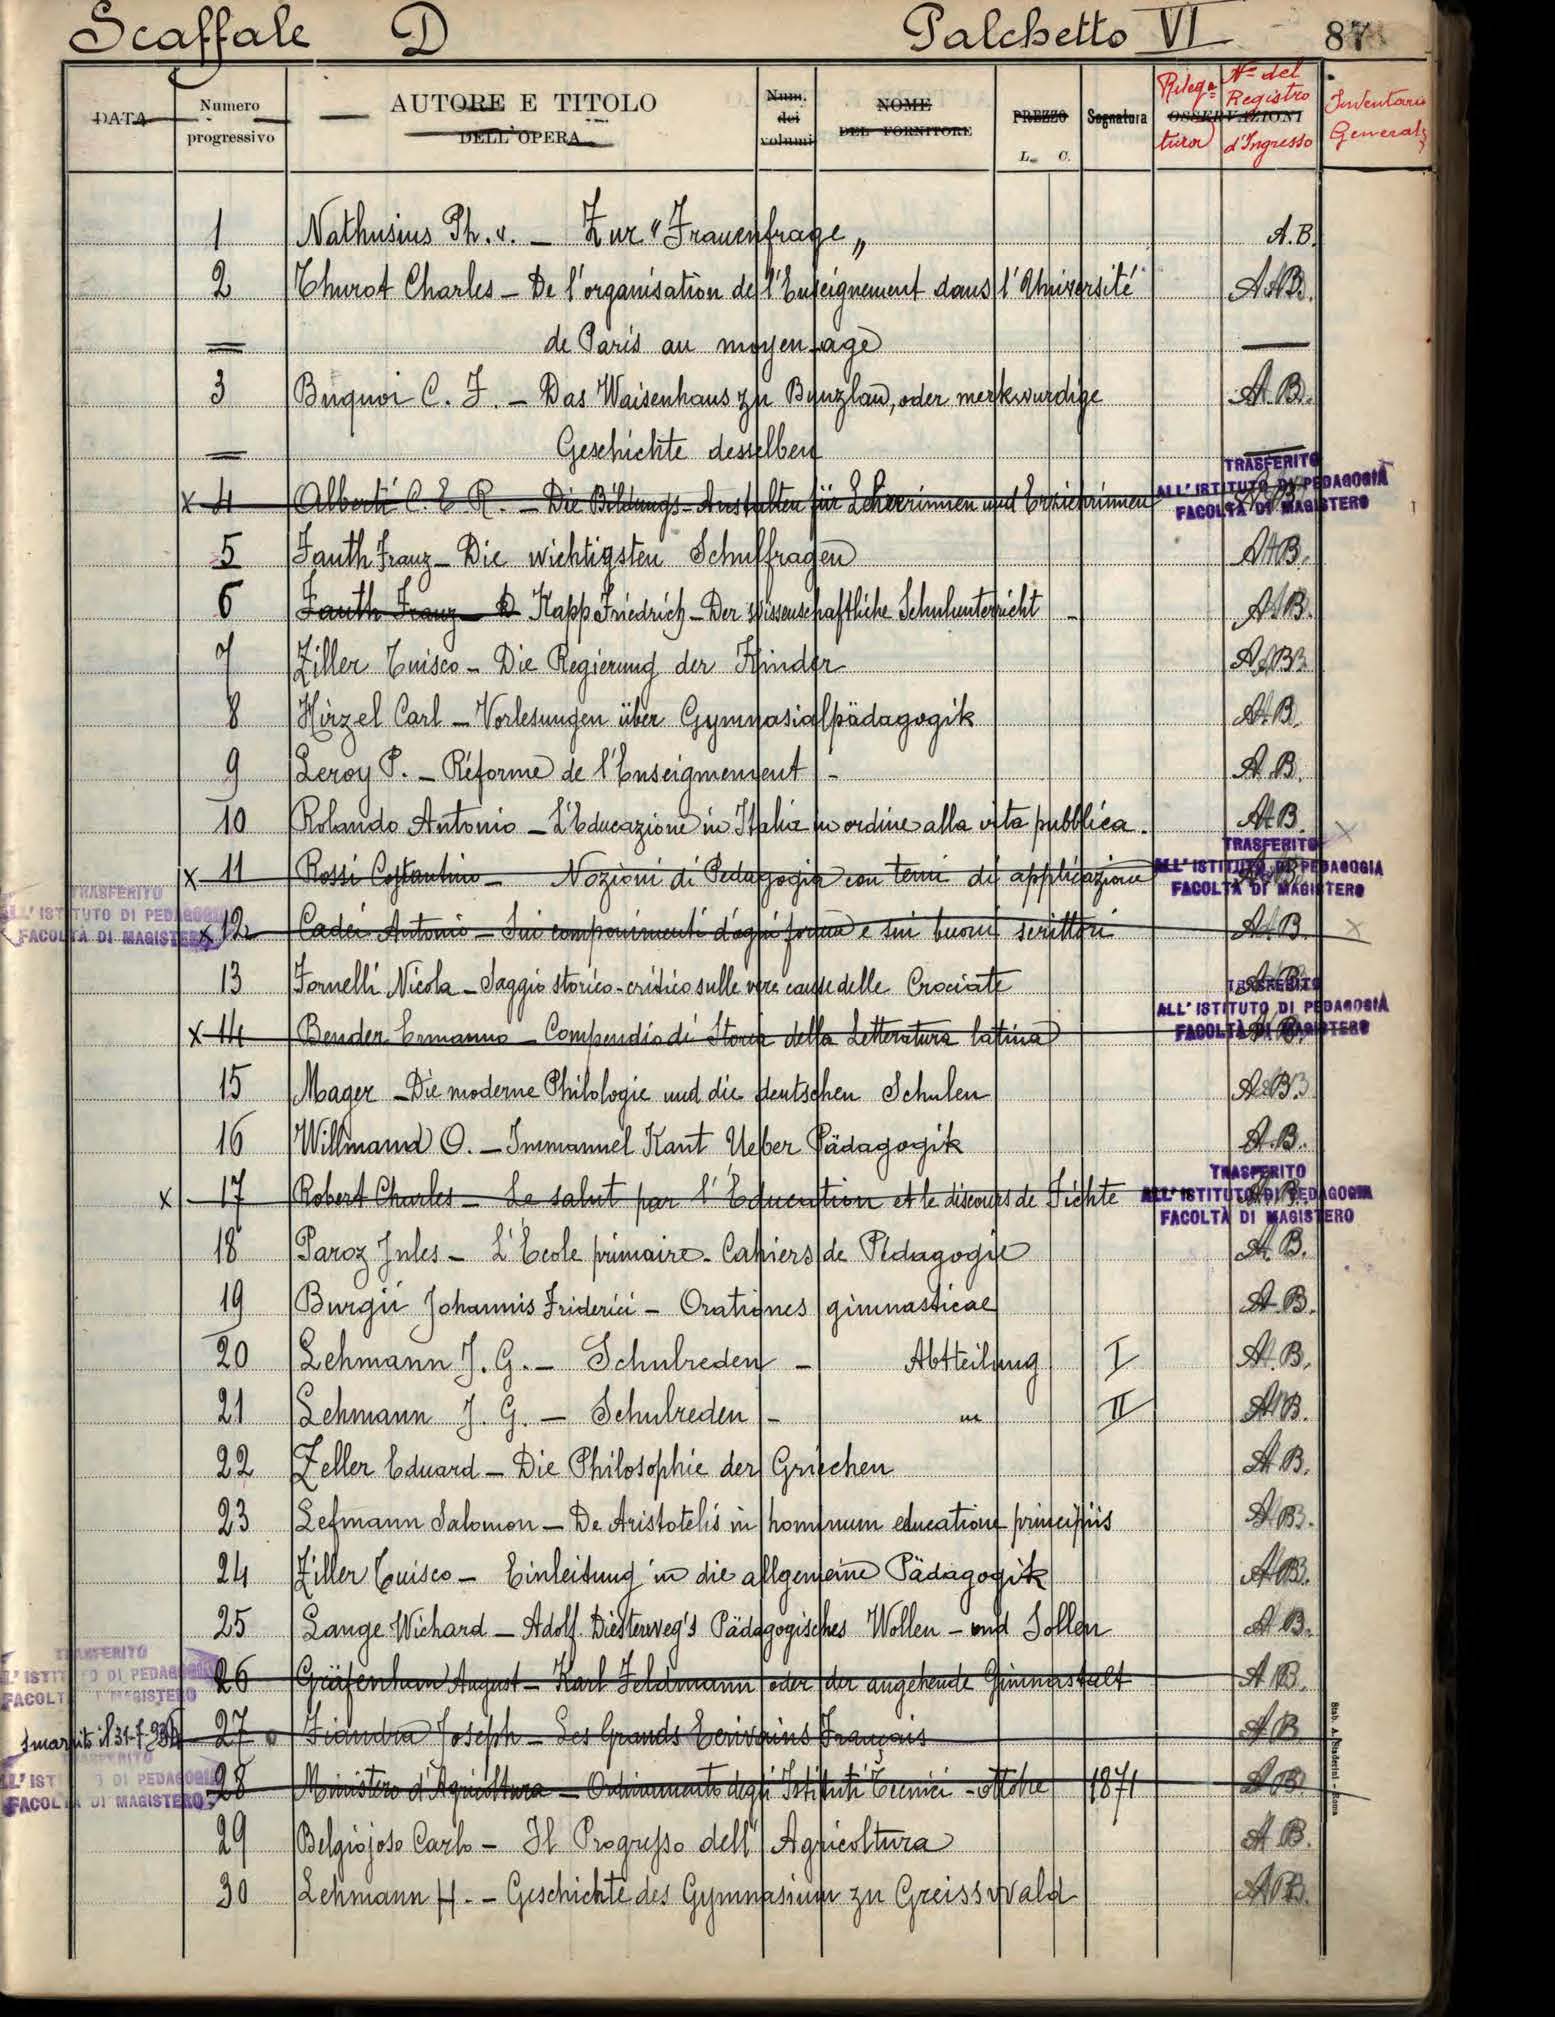 Scaffale D Palchetto VI 87
DATA Numero progressivo AUTORE E TITOLO DELL'OPERA Num. dei volumi NOME DEL FORNITORE PREZZO L. C. Segnatura OSSERVAZIONI Rilegatura N° del Registro d'Ingresso Inventario Generale
1 Nathusius Ph. v. – Zur "Frauenfrage„ A.B.
2 Thurot Charles – De l'organisation de l'Enseignement dans l'Université A.B.
= de Paris au moyen-age —
3 Buquoi C. F. – Das Waisenhaus zu Bunzlau, oder merkwurdige A.B.
= Geschichte desselben —
x 4 Alberti C. E. R. – Die Bildungs-Anstalten für Lehrerinnen und Erzieherinnen A.B.
TRASFERITO
ALL'ISTITUTO DI PEDAGOGIA
FACOLTÀ DI MAGISTERO
5 Fauth Franz – Die wichtigsten Schulfragen A.B.
6 Fauth Franz – D Kapp Friedrich – Der wissenschaftliche Schulunterricht – A.B.
7 Ziller Tuisco – Die Regierung der Kinder A.B.
8 Hirzel Carl – Vorlesungen über Gymnasialpädagogik A.B.
9 Leroy P. – Réforme de l'Enseignement – A.B.
10 Rolando Antonio – L'Educazione in Italia in ordine alla vita pubblica. A.B.
x 11 Rossi Costantino – Nozioni di Pedagogia con temi di applicazione A.B.
TRASFERITO
ALL'ISTITUTO DI PEDAGOGIA
FACOLTÀ DI MAGISTERO
TRASFERITO
ALL'ISTITUTO DI PEDAGOGIA
FACOLTÀ DI MAGISTERO
x 12 Cadei Antonio – Sui componimenti d'ogni forma e sui buoni scrittori A.B. x
13 Fornelli Nicola – Saggio storico-critico sulle vere cause delle Crociate A.B.
TRASFERITO
ALL'ISTITUTO DI PEDAGOGIA
FACOLTÀ DI MAGISTERO
x 14 Bender Ermanno – Compendio di Storia della Letteratura latina A.B.
15 Mager – Die moderne Philologie und die deutschen Schulen A.B.
16 Willmann O. – Immanuel Kant Ueber Pädagogik A.B.
x 17 Robert Charles – Le salut par l'Éducation et le discours de Fichte A.B.
TRASFERITO
ALL'ISTITUTO DI PEDAGOGIA
FACOLTÀ DI MAGISTERO
18 Paroz Jules – L'École primaire – Cahiers de Pédagogie A.B.
19 Burgii Johannis Friderici – Orationes gimnasticae A.B.
20 Lehmann J. G. – Schulreden – Abtteilung I A.B.
21 Lehmann J. G. – Schulreden – " II A.B.
22 Zeller Eduard – Die Philosophie der Griechen A.B.
23 Lefmann Salomon – De Aristotelis in hominum educatione principiis A.B.
24 Ziller Tuisco – Einleitung in die allgemeine Pädagogik A.B.
25 Lange Wichard – Adolf Diesterweg's Pädagogisches Wollen – und Sollen A.B.
TRASFERITO
ALL'ISTITUTO DI PEDAGOGIA
FACOLTÀ DI MAGISTERO
26 Gräfenhan August – Karl Feldmann oder der angehende Gimnastalt A.B.
Smarrito il 27 Fiandra Joseph – Les Grands Ecrivains Français A.B.
TRASFERITO
ALL'ISTITUTO DI PEDAGOGIA
FACOLTÀ DI MAGISTERO
28 Ministero d'Agricoltura – Ordinamento degli Istituti Tecnici – ottobre 1871 A.B.
29 Belgiojoso Carlo – Il Progresso dell'Agricoltura A.B.
30 Lehmann H. – Geschichte des Gymnasium zu Greisswald A.B.
Stab. A. Staderini – Roma